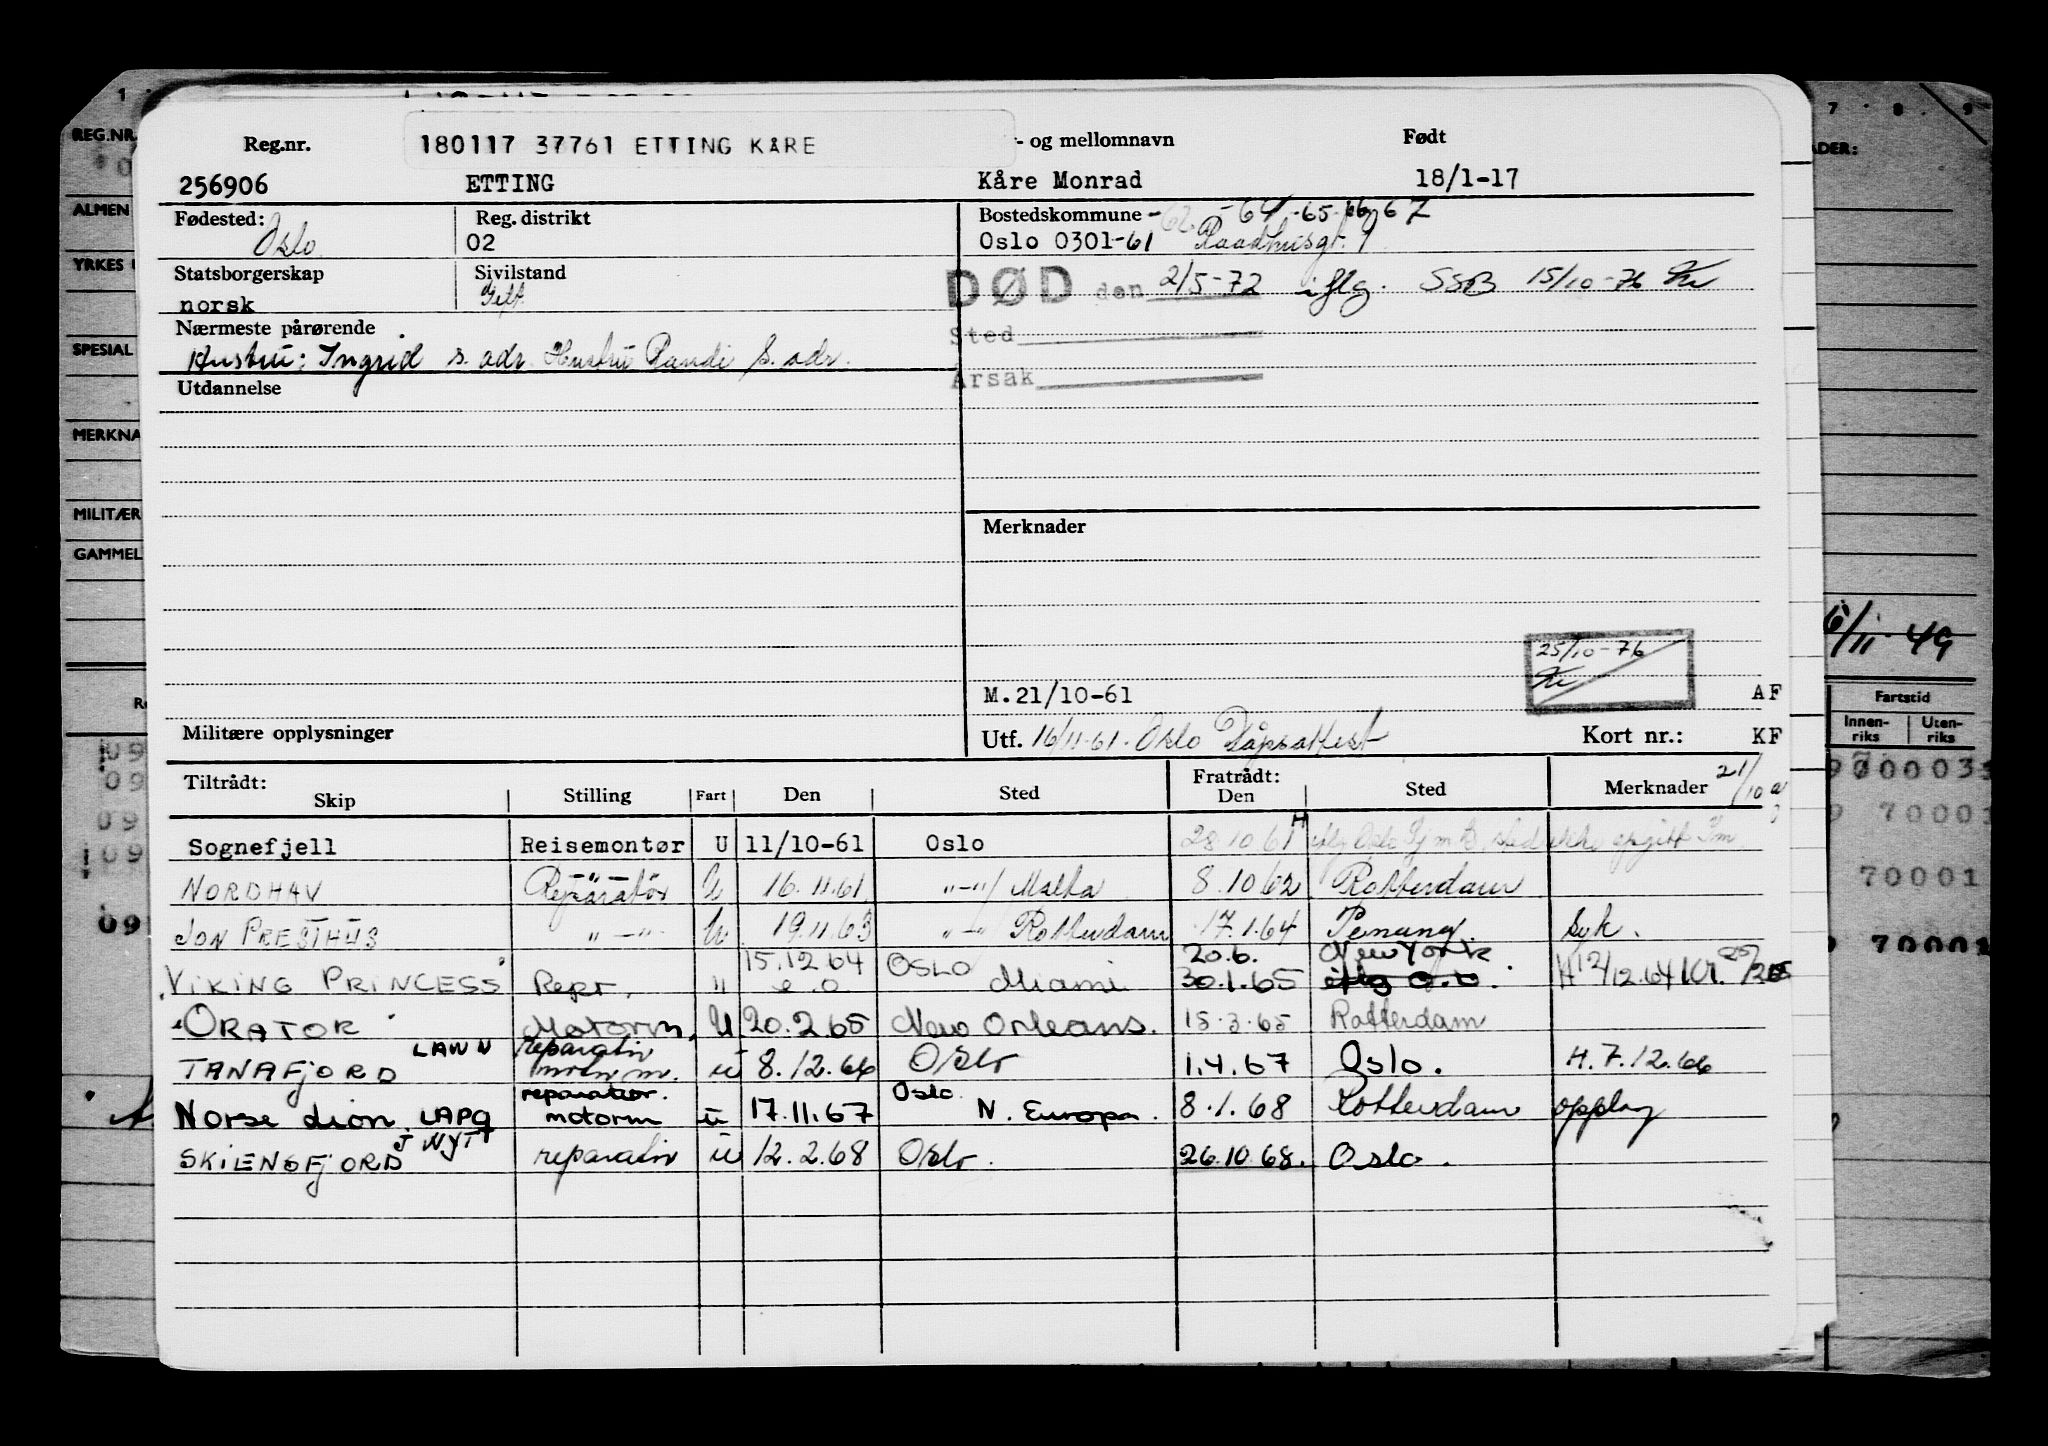 Reg.nr. 180117 37761 ETTING KÅRE - og mellomnavn Født
256906 ETTING Kåre Monrad 18/1-17
Fødested: Reg. distrikt Bostedskommune -62 -64 -65-66 67
Oslo 02 Oslo 0301-61 Raadhusgt. 1
Statsborgerskap Sivilstand DØD den 2/5-72 iflg. SSB 15/10-76
norsk Gift
Sted
Nærmeste pårørende
Hustru: Ingrid s. adr. Hustru Randi s. adr.
Årsak
Utdannelse
Merknader
25/10-76
M.21/10-61 AF
Militære opplysninger Utf. 16/11-61. Oslo Dåpsattest Kort nr.: KF
Tiltrådt: Fratrådt:
Skip Stilling Fart Den Sted Den Sted Merknader 21/10
Sognefjell Reisemontør U 11/10-61 Oslo 28.10 61 H
NORDHAV -"- Reparatør U 16.11.61 "-"/ Malta 8.10 62 Rotterdam
JON PRESTHUS "-" U 19.11.63 "-" Rotterdam 17.1.64 Penang. Syk.
"VIKING PRINCESS" Repr. " 15.12.64 OSLO Miami 20.6. 30.1.65 New York H 12/12.64
"ORATOR" Motorm. U 20.2.65 New Orleans. 15.3.65 Rotterdam
TANAFJORD LAWN reparatør motorm. U 8.12.66 Oslo 1.4.67 Oslo. H.7.12.66
Norse Lion. LAPQ reparatør. motorm U 17.11.67 Oslo N. Europa. 8.1.68 Rotterdam opplag
SKIENSFJORD reparatør U 12.2.68 Oslo. 26.10.68. Oslo.
REG.NR.
ALMEN
YRKES
SPESIAL
MERKNA
MILITÆR
GAMMEL
7 8 9
ADER:
11-49
Fartstid
Innen-riks Uten-riks
70001
70001